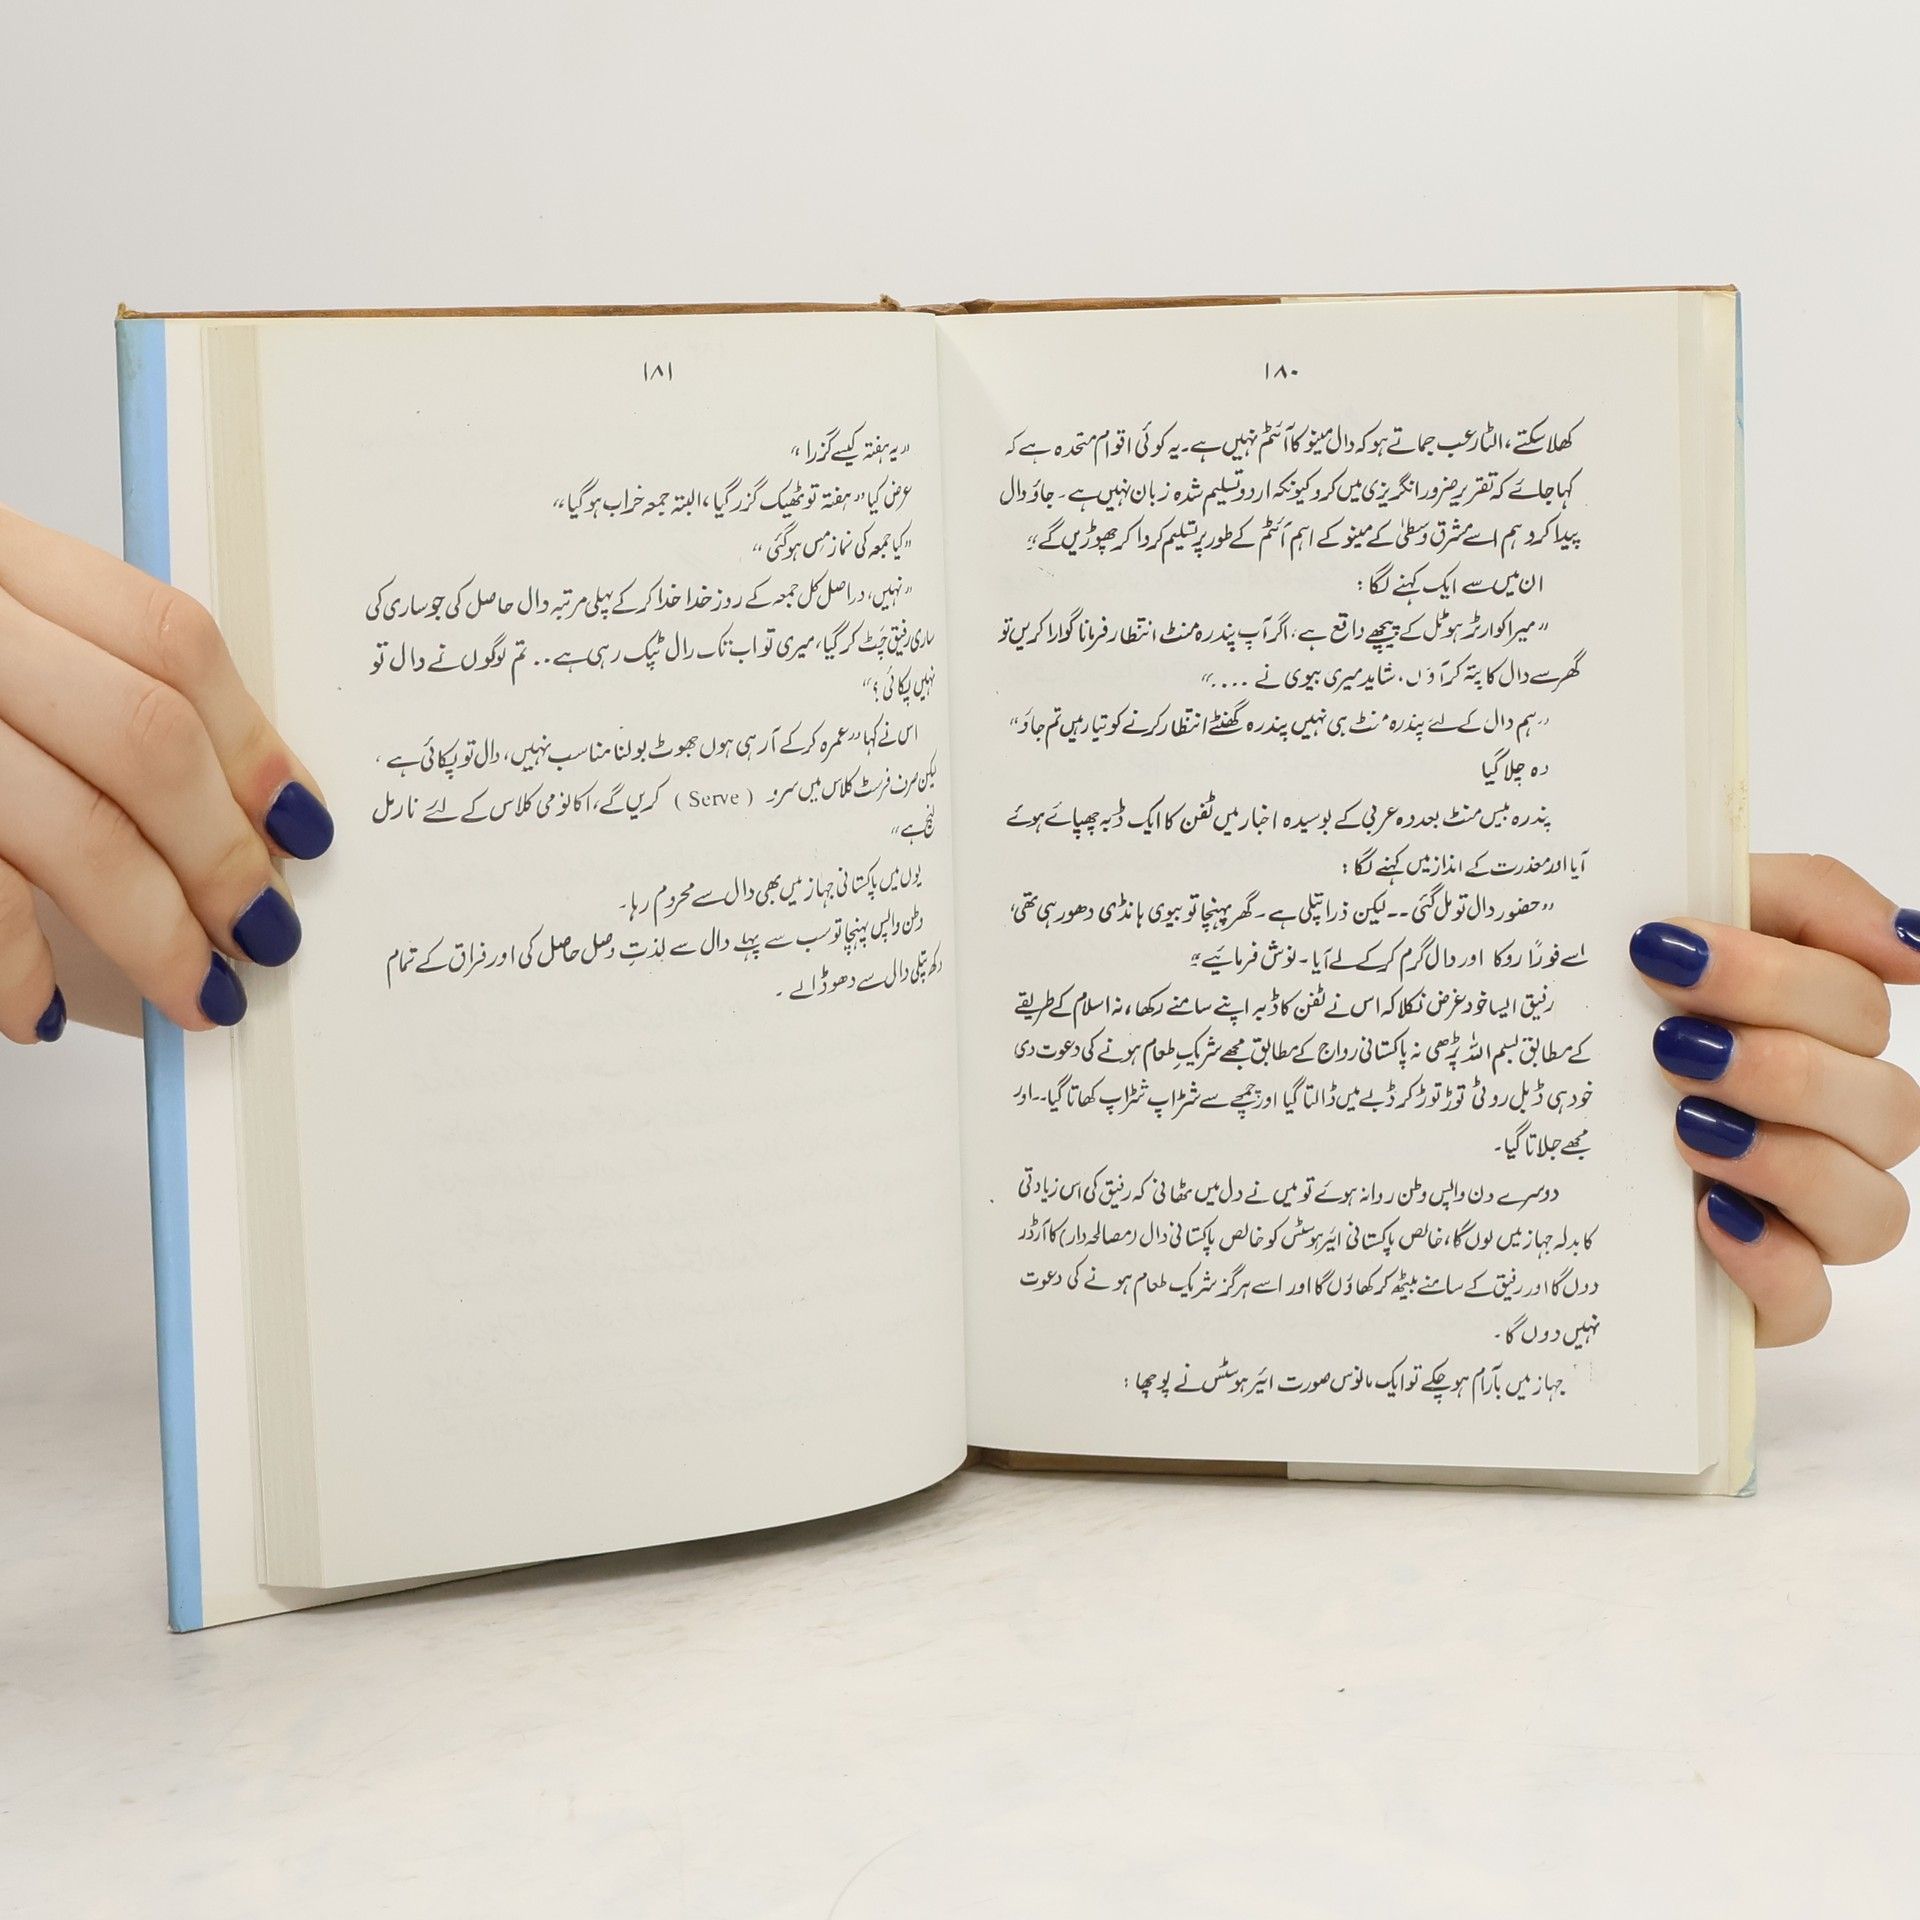 ۱۸۰
کھلا سکتے، الٹا رعب جماتے ہو کہ دال مینو کا آئٹم نہیں ہے۔ یہ کوئی اقوام متحدہ ہے کہ
کہا جائے کہ تقریر ضرور انگریزی میں کرو کیونکہ اردو تسلیم شدہ زبان نہیں ہے۔ جاؤ دال
پیدا کرو ہم اسے مشرق وسطیٰ کے مینو کے اہم آئٹم کے طور پر تسلیم کروا کر چھوڑیں گے"
ان میں سے ایک کہنے لگا :
"میرا کوارٹر ہوٹل کے پیچھے واقع ہے، اگر آپ پندرہ منٹ انتظار فرمانا گوارا کریں تو
گھر سے دال کا پتہ کر آؤں، شاید میری بیوی نے ...."
"ہم دال کے لئے پندرہ منٹ ہی نہیں پندرہ گھنٹے انتظار کرنے کو تیار ہیں تم جاؤ"
وہ چلا گیا
پندرہ بیس منٹ بعد وہ عربی کے بوسیدہ اخبار میں ٹفن کا ایک ڈبہ چھپائے ہوئے
آیا اور معذرت کے انداز میں کہنے لگا :
"حضور دال تو مل گئی -- لیکن ذرا پتلی ہے۔ گھر پہنچا تو بیوی ہانڈی دھو رہی تھی،
اسے فوراً روکا اور دال گرم کر کے لے آیا۔ نوش فرمائیے"
رفیق ایسا خود غرض نکلا کہ اس نے ٹفن کا ڈبہ اپنے سامنے رکھا، نہ اسلام کے طریقے
کے مطابق بسم اللہ پڑھی نہ پاکستانی رواج کے مطابق مجھے شریکِ طعام ہونے کی دعوت دی
خود ہی ڈبل روٹی توڑ توڑ کر ڈبے میں ڈالتا گیا اور چمچے سے شڑاپ شڑاپ کھاتا گیا۔۔ اور
مجھے جلاتا گیا۔
دوسرے دن واپس وطن روانہ ہوئے تو میں نے دل میں ٹھانی کہ رفیق کی اس زیادتی
کا بدلہ جہاز میں لوں گا، خالص پاکستانی ائیر ہوسٹس کو خالص پاکستانی دال (مصالحہ دار) کا آرڈر
دوں گا اور رفیق کے سامنے بیٹھ کر کھاؤں گا اور اسے ہرگز شریک طعام ہونے کی دعوت
نہیں دوں گا۔
جہاز میں بآرام ہو چکے تو ایک مانوس صورت ائیر ہوسٹس نے پوچھا :
۱۸۱
"یہ ہفتہ کیسے گزرا"
عرض کیا "ہفتہ تو ٹھیک گزر گیا، البتہ جمعہ خراب ہو گیا"
"کیا جمعہ کی نماز مِس ہو گئی"
"نہیں، دراصل کل جمعہ کے روز خدا خدا کر کے پہلی مرتبہ دال حاصل کی جو ساری کی
ساری رفیق چٹ کر گیا، میری تو اب تک رال ٹپک رہی ہے .. تم لوگوں نے دال تو
نہیں پکائی؟"
اس نے کہا "عمرہ کر کے آ رہی ہوں جھوٹ بولنا مناسب نہیں، دال تو پکائی ہے،
لیکن صرف فرسٹ کلاس میں سرو (Serve) کریں گے، اکانومی کلاس کے لئے نارمل
لنچ ہے"
یوں میں پاکستانی جہاز میں بھی دال سے محروم رہا۔
وطن واپس پہنچا تو سب سے پہلے دال سے لذتِ وصل حاصل کی اور فراق کے تمام
دکھ پتلی دال سے دھو ڈالے۔